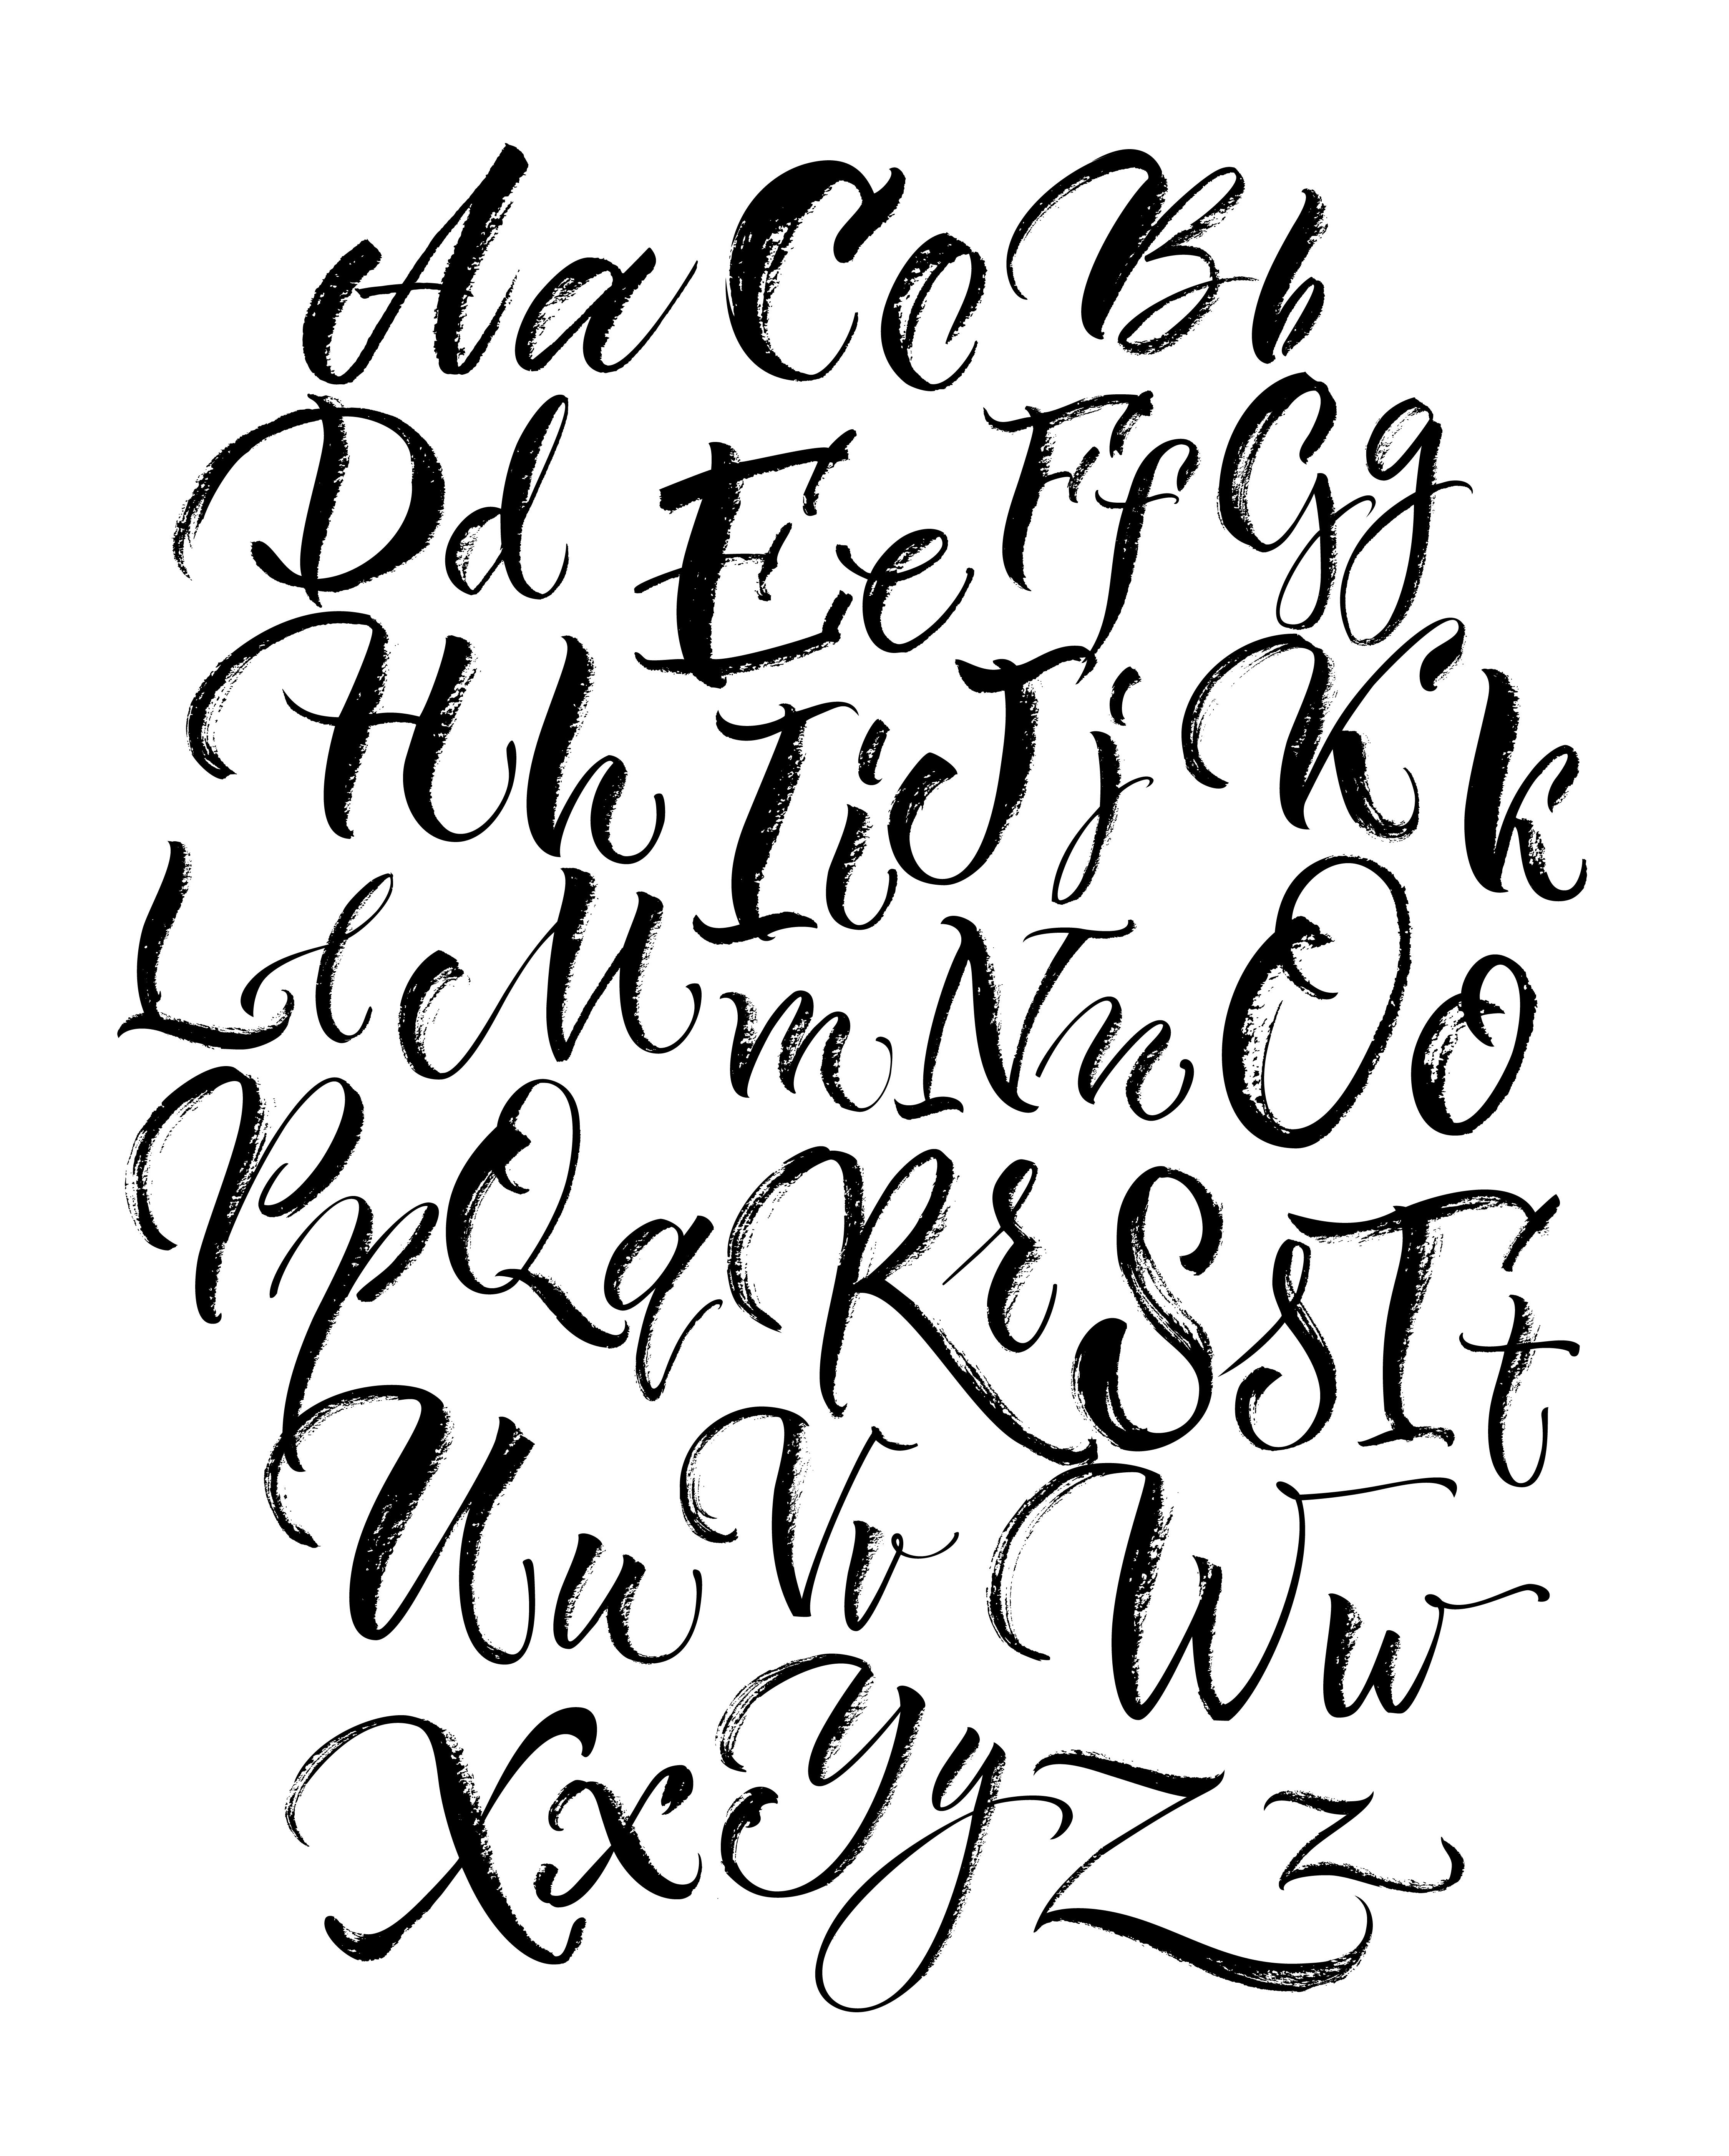 Aa Cc Bb
Dd Ee Ff Gg
Hh Ii Jj Kk
Ll Mm Nn Oo
Pp Qq Rr Ss Tt
Uu Vv Ww
Xx Yy Zz